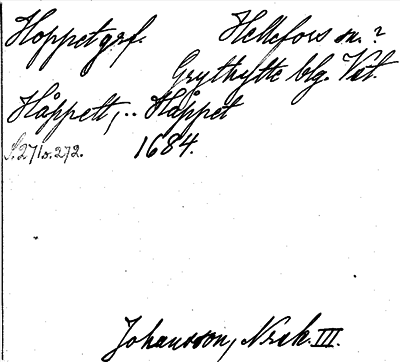 Hoppetgrf. Hellefors sn.?
Grythytte blg. Vstl.
Håppett, .. Håppet
S. 271 o. 272. 1684.
Johansson, Nrsk. III.